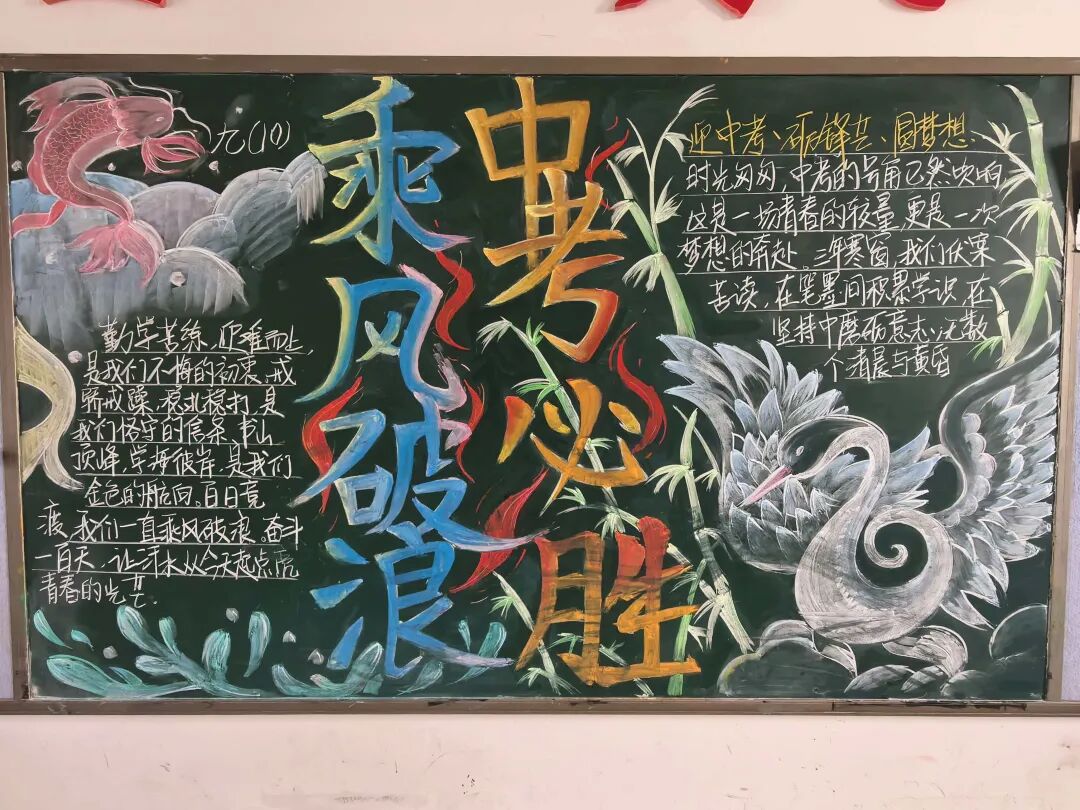 九(10)
乘风破浪
中考必胜
勤学苦练，迎难而上，
是我们不悔的初衷，戒
骄戒躁，稳扎稳打，是
我们恪守的信条，书山
顶峰，学海彼岸，是我们
金色的航向。百日竞
渡，我们一直乘风破浪。奋斗
一百天，让汗水从今天起点亮
青春的光芒。
迎中考、砺锋芒、圆梦想
时光匆匆，中考的号角已然吹响，
这是一场青春的较量，更是一次
梦想的奔赴。三年寒窗，我们伏案
苦读，在笔墨间积累学识，在
坚持中磨砺意志，无数
个清晨与黄昏